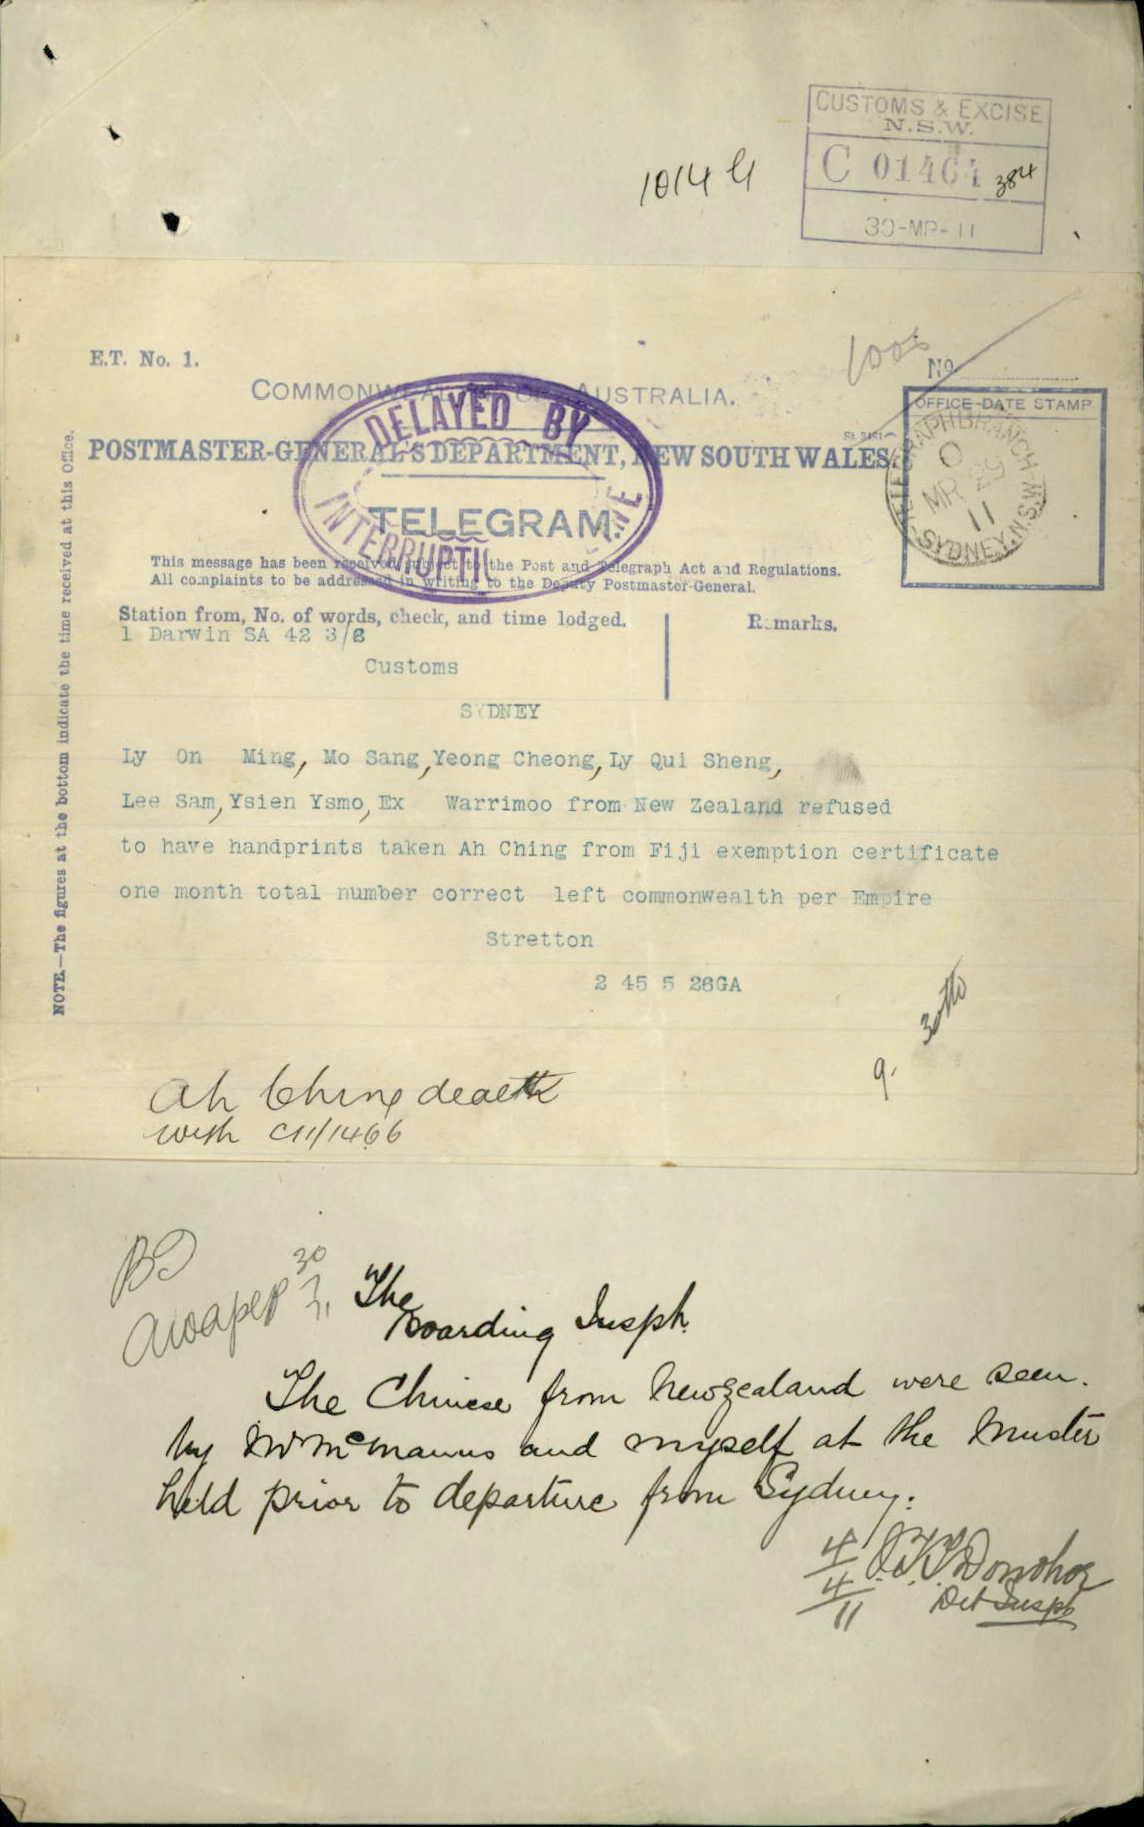 CUSTOMS & EXCISE
N.S.W.
C 01464 384
30-MR-11
1014 G
E.T. No. 1.
1006
No.
COMMONWEALTH OF AUSTRALIA.
OFFICE DATE STAMP
POSTMASTER-GENERAL'S DEPARTMENT, NEW SOUTH WALES.
DELAYED BY
LINE
INTERRUPTIO
TELEGRAM.
TELEGRAPH BRANCH
O
MR 29
11
SYDNEY. N.S.W.
This message has been received subject to the Post and Telegraph Act and Regulations.
All complaints to be addressed in writing to the Deputy Postmaster-General.
Station from, No. of words, check, and time lodged.
Remarks.
1 Darwin SA 42 3/8
Customs
SYDNEY
Ly On Ming, Mo Sang, Yeong Cheong, Ly Qui Sheng,
Lee Sam, Ysien Ysmo, Ex Warrimoo from New Zealand refused
to have handprints taken Ah Ching from Fiji exemption certificate
one month total number correct left commonwealth per Empire
Stretton
2 45 5 26GA
NOTE.—The figures at the bottom indicate the time received at this Office.
9.
Ah Ching dealt
with C11/1466
BI
30
3
11
The
Boarding Inspr.
The Chinese from New Zealand were seen
by Mr McManus and myself at the Muster
held prior to departure from Sydney.
4/4/11
Donohoe
Det Inspr